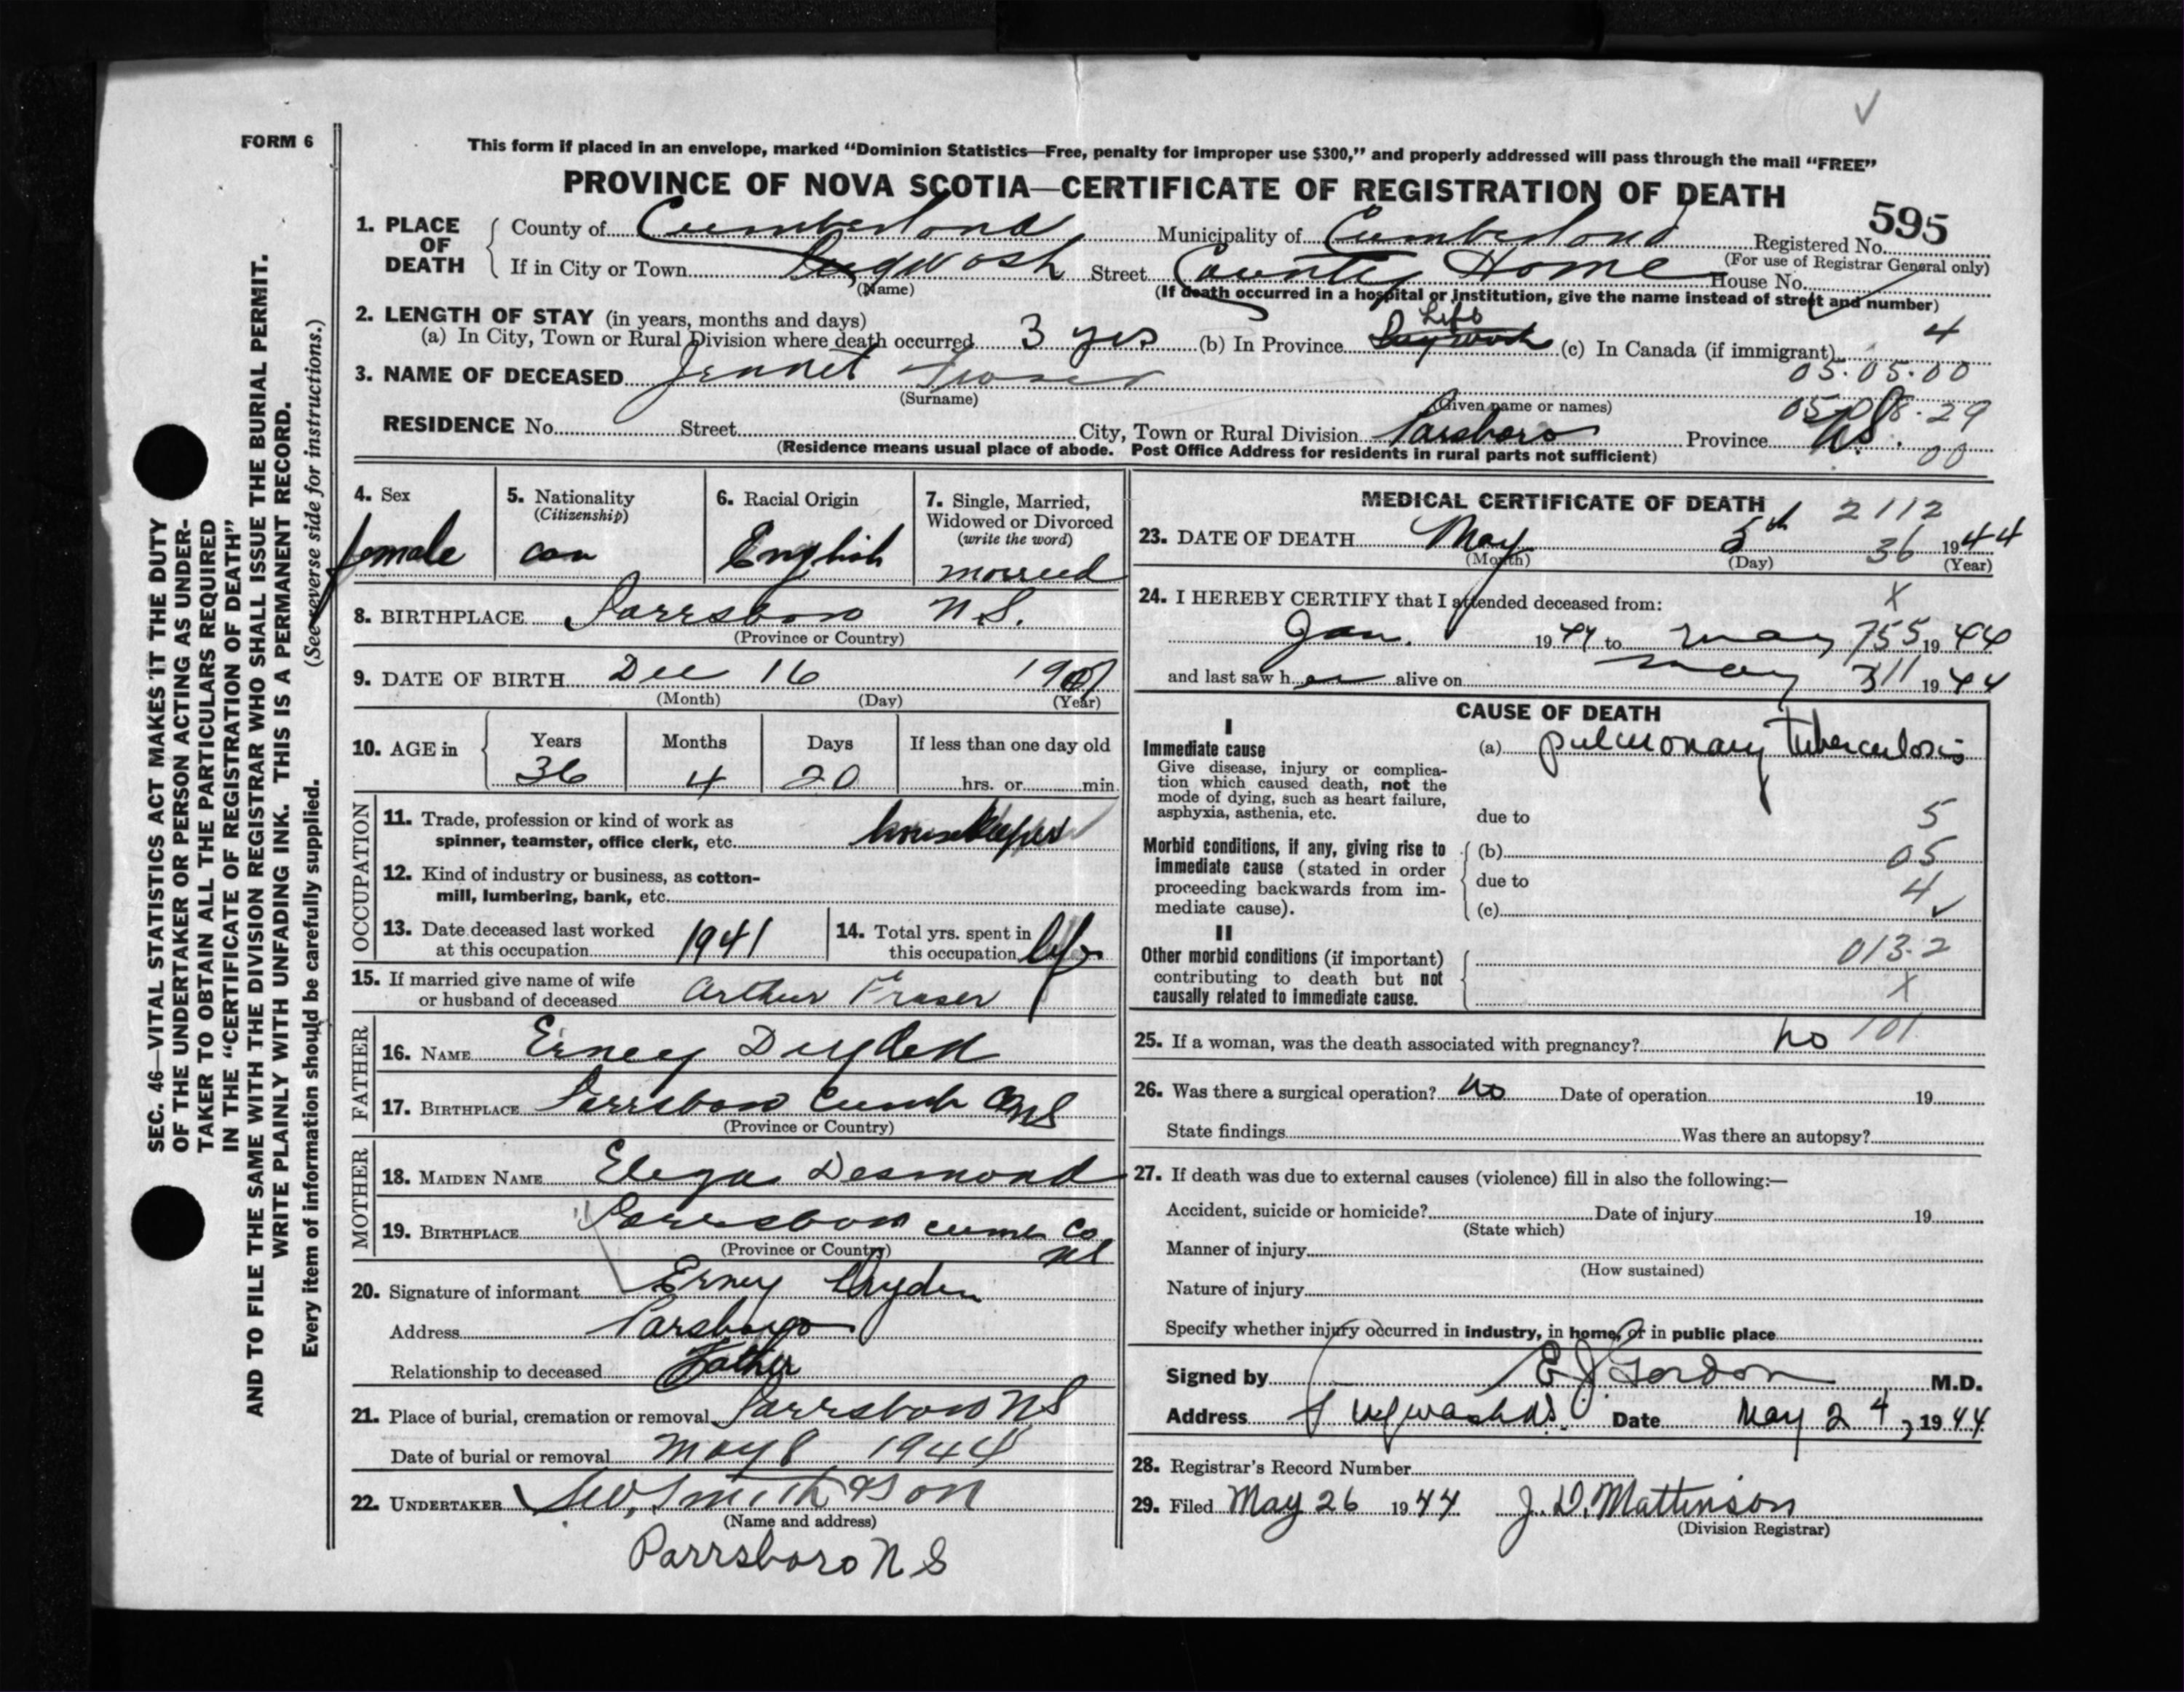 FORM 6
This form if placed in an envelope, marked “Dominion Statistics—Free, penalty for improper use $300,” and properly addressed will pass through the mail “FREE”
PROVINCE OF NOVA SCOTIA—CERTIFICATE OF REGISTRATION OF DEATH
595
1. PLACE OF DEATH
County of Cumberland Municipality of Cumberland Registered No.
(For use of Registrar General only)
If in City or Town Pugwash Street County Home House No.
(Name) (If death occurred in a hospital or institution, give the name instead of street and number)
2. LENGTH OF STAY (in years, months and days)
(a) In City, Town or Rural Division where death occurred 3 yrs (b) In Province Life (c) In Canada (if immigrant) 4
05.05.00
3. NAME OF DECEASED Jennet Fraser
(Surname) (Given name or names)
RESIDENCE No. Street City, Town or Rural Division Parsboro Province N.S.
00
(Residence means usual place of abode. Post Office Address for residents in rural parts not sufficient)
4. Sex female
5. Nationality (Citizenship) can
6. Racial Origin English
7. Single, Married, Widowed or Divorced (write the word) married
8. BIRTHPLACE Parrsboro N.S.
(Province or Country)
9. DATE OF BIRTH Dec 16 1907
(Month) (Day) (Year)
10. AGE in Years 36 Months 4 Days 20 If less than one day old hrs. or min.
OCCUPATION
11. Trade, profession or kind of work as spinner, teamster, office clerk, etc. housekeeper
12. Kind of industry or business, as cotton-mill, lumbering, bank, etc.
13. Date deceased last worked at this occupation 1941
14. Total yrs. spent in this occupation life
15. If married give name of wife or husband of deceased Arthur Fraser
FATHER
16. NAME Erney
17. BIRTHPLACE Parrsboro Cumb Co NS
(Province or Country)
MOTHER
18. MAIDEN NAME Eliza Desmond
19. BIRTHPLACE Parrsboro Cumb Co NS
(Province or Country)
20. Signature of informant Erney Dryden
Address Parsboro
Relationship to deceased Father
21. Place of burial, cremation or removal Parrsboro NS
Date of burial or removal May 8 1944
22. UNDERTAKER Smith & Son
(Name and address)
Parrsboro N S
MEDICAL CERTIFICATE OF DEATH
2112
23. DATE OF DEATH May 5th 36 1944
(Month) (Day) (Year)
X
24. I HEREBY CERTIFY that I attended deceased from:
Jan. 1944 to May 1944
and last saw her alive on May 1944
CAUSE OF DEATH
I
Immediate cause
Give disease, injury or complication which caused death, not the mode of dying, such as heart failure, asphyxia, asthenia, etc.
(a) pulmonary tuberculosis
due to 5
Morbid conditions, if any, giving rise to immediate cause (stated in order proceeding backwards from immediate cause).
(b) 05
due to 4
(c)
II
Other morbid conditions (if important) contributing to death but not causally related to immediate cause.
013.2
X
25. If a woman, was the death associated with pregnancy? no 101
26. Was there a surgical operation? no Date of operation 19
State findings Was there an autopsy?
27. If death was due to external causes (violence) fill in also the following:—
Accident, suicide or homicide? Date of injury 19
(State which)
Manner of injury
(How sustained)
Nature of injury
Specify whether injury occurred in industry, in home, or in public place
Signed by E J Gordon M.D.
Address Pugwash NS. Date May 24, 1944
28. Registrar's Record Number
29. Filed May 26 1944 J. D. Mattinson
(Division Registrar)
SEC. 46—VITAL STATISTICS ACT MAKES IT THE DUTY
OF THE UNDERTAKER OR PERSON ACTING AS UNDER-
TAKER TO OBTAIN ALL THE PARTICULARS REQUIRED
IN THE “CERTIFICATE OF REGISTRATION OF DEATH”
AND TO FILE THE SAME WITH THE DIVISION REGISTRAR WHO SHALL ISSUE THE BURIAL PERMIT.
WRITE PLAINLY WITH UNFADING INK. THIS IS A PERMANENT RECORD.
Every item of information should be carefully supplied. (See reverse side for instructions.)